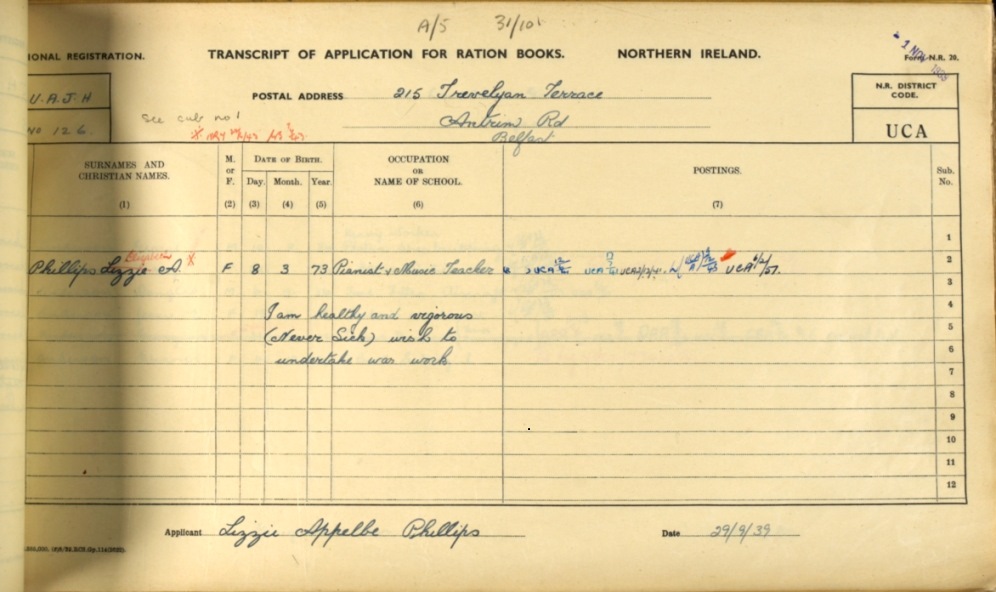 A/5 31/10
1 NOV
IONAL REGISTRATION. TRANSCRIPT OF APPLICATION FOR RATION BOOKS. NORTHERN IRELAND. Form N.R. 29.
U.A.J.H POSTAL ADDRESS 215 Trevelyan Terrace N.R. DISTRICT CODE.
No 126. See sub no 1 Antrim Rd UCA
Belfast
SURNAMES AND CHRISTIAN NAMES. M. or F. DATE OF BIRTH. OCCUPATION OR NAME OF SCHOOL. POSTINGS. Sub. No.
Day. Month. Year.
(1) (2) (3) (4) (5) (6) (7)
1
Elizabeth
Phillips Lizzie A. X F 8 3 73 Pianist & Music Teacher UCA UCA UCA UCA 6/2/57. 2
3
I am healthy and vigorous 4
(Never Sick) wish to 5
undertake war work 6
7
8
9
10
11
12
Applicant Lizzie Appelbe Phillips Date 29/9/39